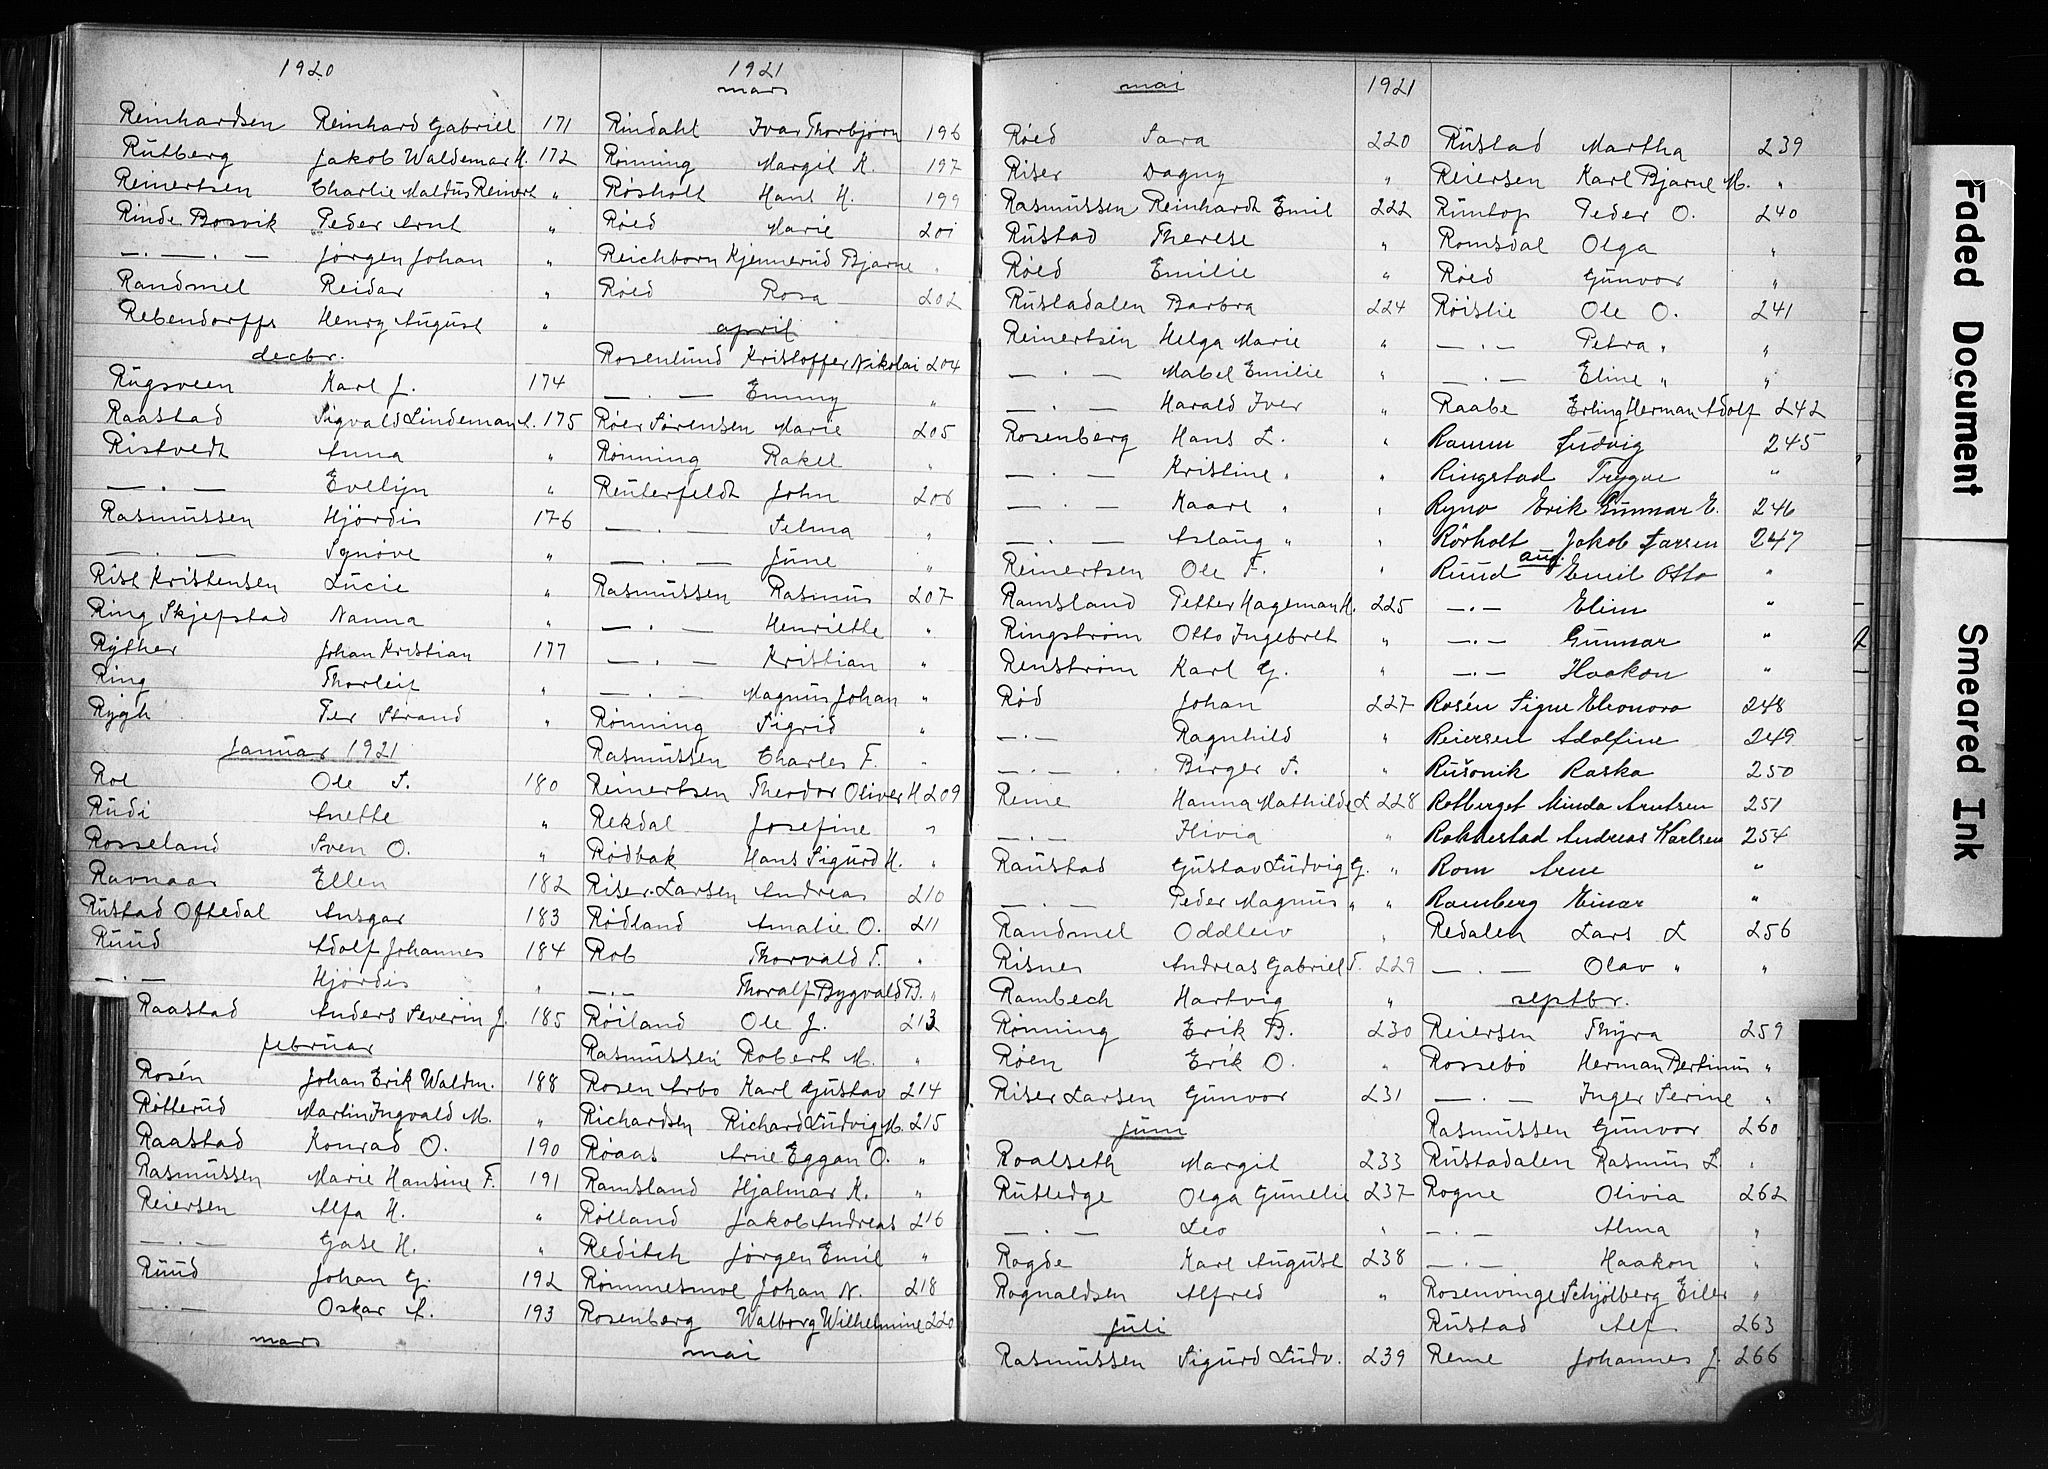 1920
Reinhardsen Reinhard Gabriel 171
Rutberg Jakob Waldemar H. 172
Reinertsen Charlie Maldus Reinert "
Rinde Bosvik Peder Arnt "
— . — . — Jørgen Johan "
Randmel Reidar "
Rebendorffs Henry August "
decbr.
Rugsveen Karl J. 174
Raastad Sigvald Lindeman A. 175
Ristvedt Anna "
— . — Evelyn "
Rasmussen Hjørdis 176
— . — Synøve "
Rist Kristensen Lucie "
Ring Skjefstad Nanna "
Ryther Johan Kristian 177
Ring Thorleif "
Rygh Per Strand "
Januar 1921
Rol Ole S. 180
Rudi Anette "
Rosseland Sven O. "
Ravnaas Ellen 182
Rustad Oftedal Ansgar 183
Ruud Adolf Johannes 184
— . — Hjørdis "
Raastad Anders Severin J. 185
februar
Rosén Johan Erik Waldm. 188
Røtterud Martin Ingvald M. "
Raastad Konrad O. 190
Rasmussen Marie Hansine F. 191
Reiersen Alfa H. "
— . — Gase H. "
Ruud Johan G. 192
— . — Oskar A. 193
mars
1921
mars
Rindahl Ivar Thorbjørn 196
Rønning Margit K. 197
Røsholt Hans H. 199
Røed Marie 201
Reichborn Kjennerud Bjarne "
Røed Rosa 202
april
Rosenlund Kristoffer Nikolai 204
— . — Emmy "
Røer Sørensen Marie 205
Rønning Rakel "
Reuterfeldt John 206
— . — Selma "
— . — June "
Rasmussen Rasmus 207
— . — Henriette "
— . — Kristian "
— . — Magnus Johan "
Rønning Sigrid "
Rasmussen Charles F. "
Reinertsen Theodor Oliver H 209
Rekdal Josefine "
Rødbak Hans Sigurd H. "
Riser-Larsen Andreas 210
Rødland Amalie O. 211
Rob Thorvald T. "
— . — Thoralf Bygvald B. "
Røiland Ole J. 213
Rasmussen Robert M. "
Rosen Arbo Karl Gustav 214
Richardsen Richard Ludvig M. 215
Røaas Arne Eggan O. "
Ramsland Hjalmar K. "
Rølland Jakob Andreas 216
Reditch Jørgen Emil "
Rømmesmoe Johan N. 218
Rosenberg Walborg Wilhelmine 220
mai
mai 1921
Røed Sara 220
Riser Dagny "
Rasmussen Reinhardt Emil 222
Rustad Therese "
Røed Emilie "
Rustadalen Barbra 224
Reinertsen Helga Marie "
— . — Mabel Emilie "
— . — Harald Iver "
Rosenberg Hans L. "
— . — Kristine " "
— . — Kaare " "
— . — Aslaug " "
Reinertsen Ole F. "
Ramsland Petter Hageman H. 225
Ringstrøm Otto Ingebret "
Renstrøm Karl G. "
Rød Johan 227
— . — Ragnhild "
— . — Birger S. "
Reme Hanna Mathilde L 228
— . — Flivia "
Raustad Gustav Ludvig G. "
— . — Peder Magnus " "
Randmel Oddleiv "
Risnes Andreas Gabriel T. 229
Rambech Hartvig "
Rønning Erik B. 230
Røen Erik O. "
Riser Larsen Gunvor 231
juni
Roalseth Margit 233
Rutledge Olga Gunelie 237
— . — Leo "
Rogde Karl August 238
Rognaldsen Alfred "
juli
Rasmussen Sigurd Ludv. 239
Rustad Martha 239
Reiersen Karl Bjarne M. "
Runtop Peder O. 240
Romsdal Olga "
Røed Gunvor "
Røislie Ole O. 241
— . — Petra " "
— . — Eline " "
Raabe Erling Herman Adolf 242
Ramm Ludvig 245
Ringstad Trygve "
Ryno Erik Gunnar E. 246
Rörholt Jakob Larsen 247
aug.
Ruud Emil Otto "
— . — Elim "
— . — Gunnar "
— . — Haakon "
Rosén Signe Eleonora 248
Reiersen Adolfine 249
Rusonik Raska 250
Rotberget Minda Arntsen 251
Rokkestad Andreas Karlsen 254
Rom Arne "
Ramberg Einar "
Redalen Lars L 256
— . — Olav " "
septbr.
Reiersen Thyra 259
Rossebö Herman Bertinius "
— . — Inger Serine "
Rasmussen Gunvor 260
Rustadalen Rasmus L. "
Rogne Olivia 262
— . — Alma "
— . — Haakon "
Rosenvinge Schjölberg Eiler "
Rustad Alf 263
Reme Johannes J. 266
Faded Document
Smeared Ink